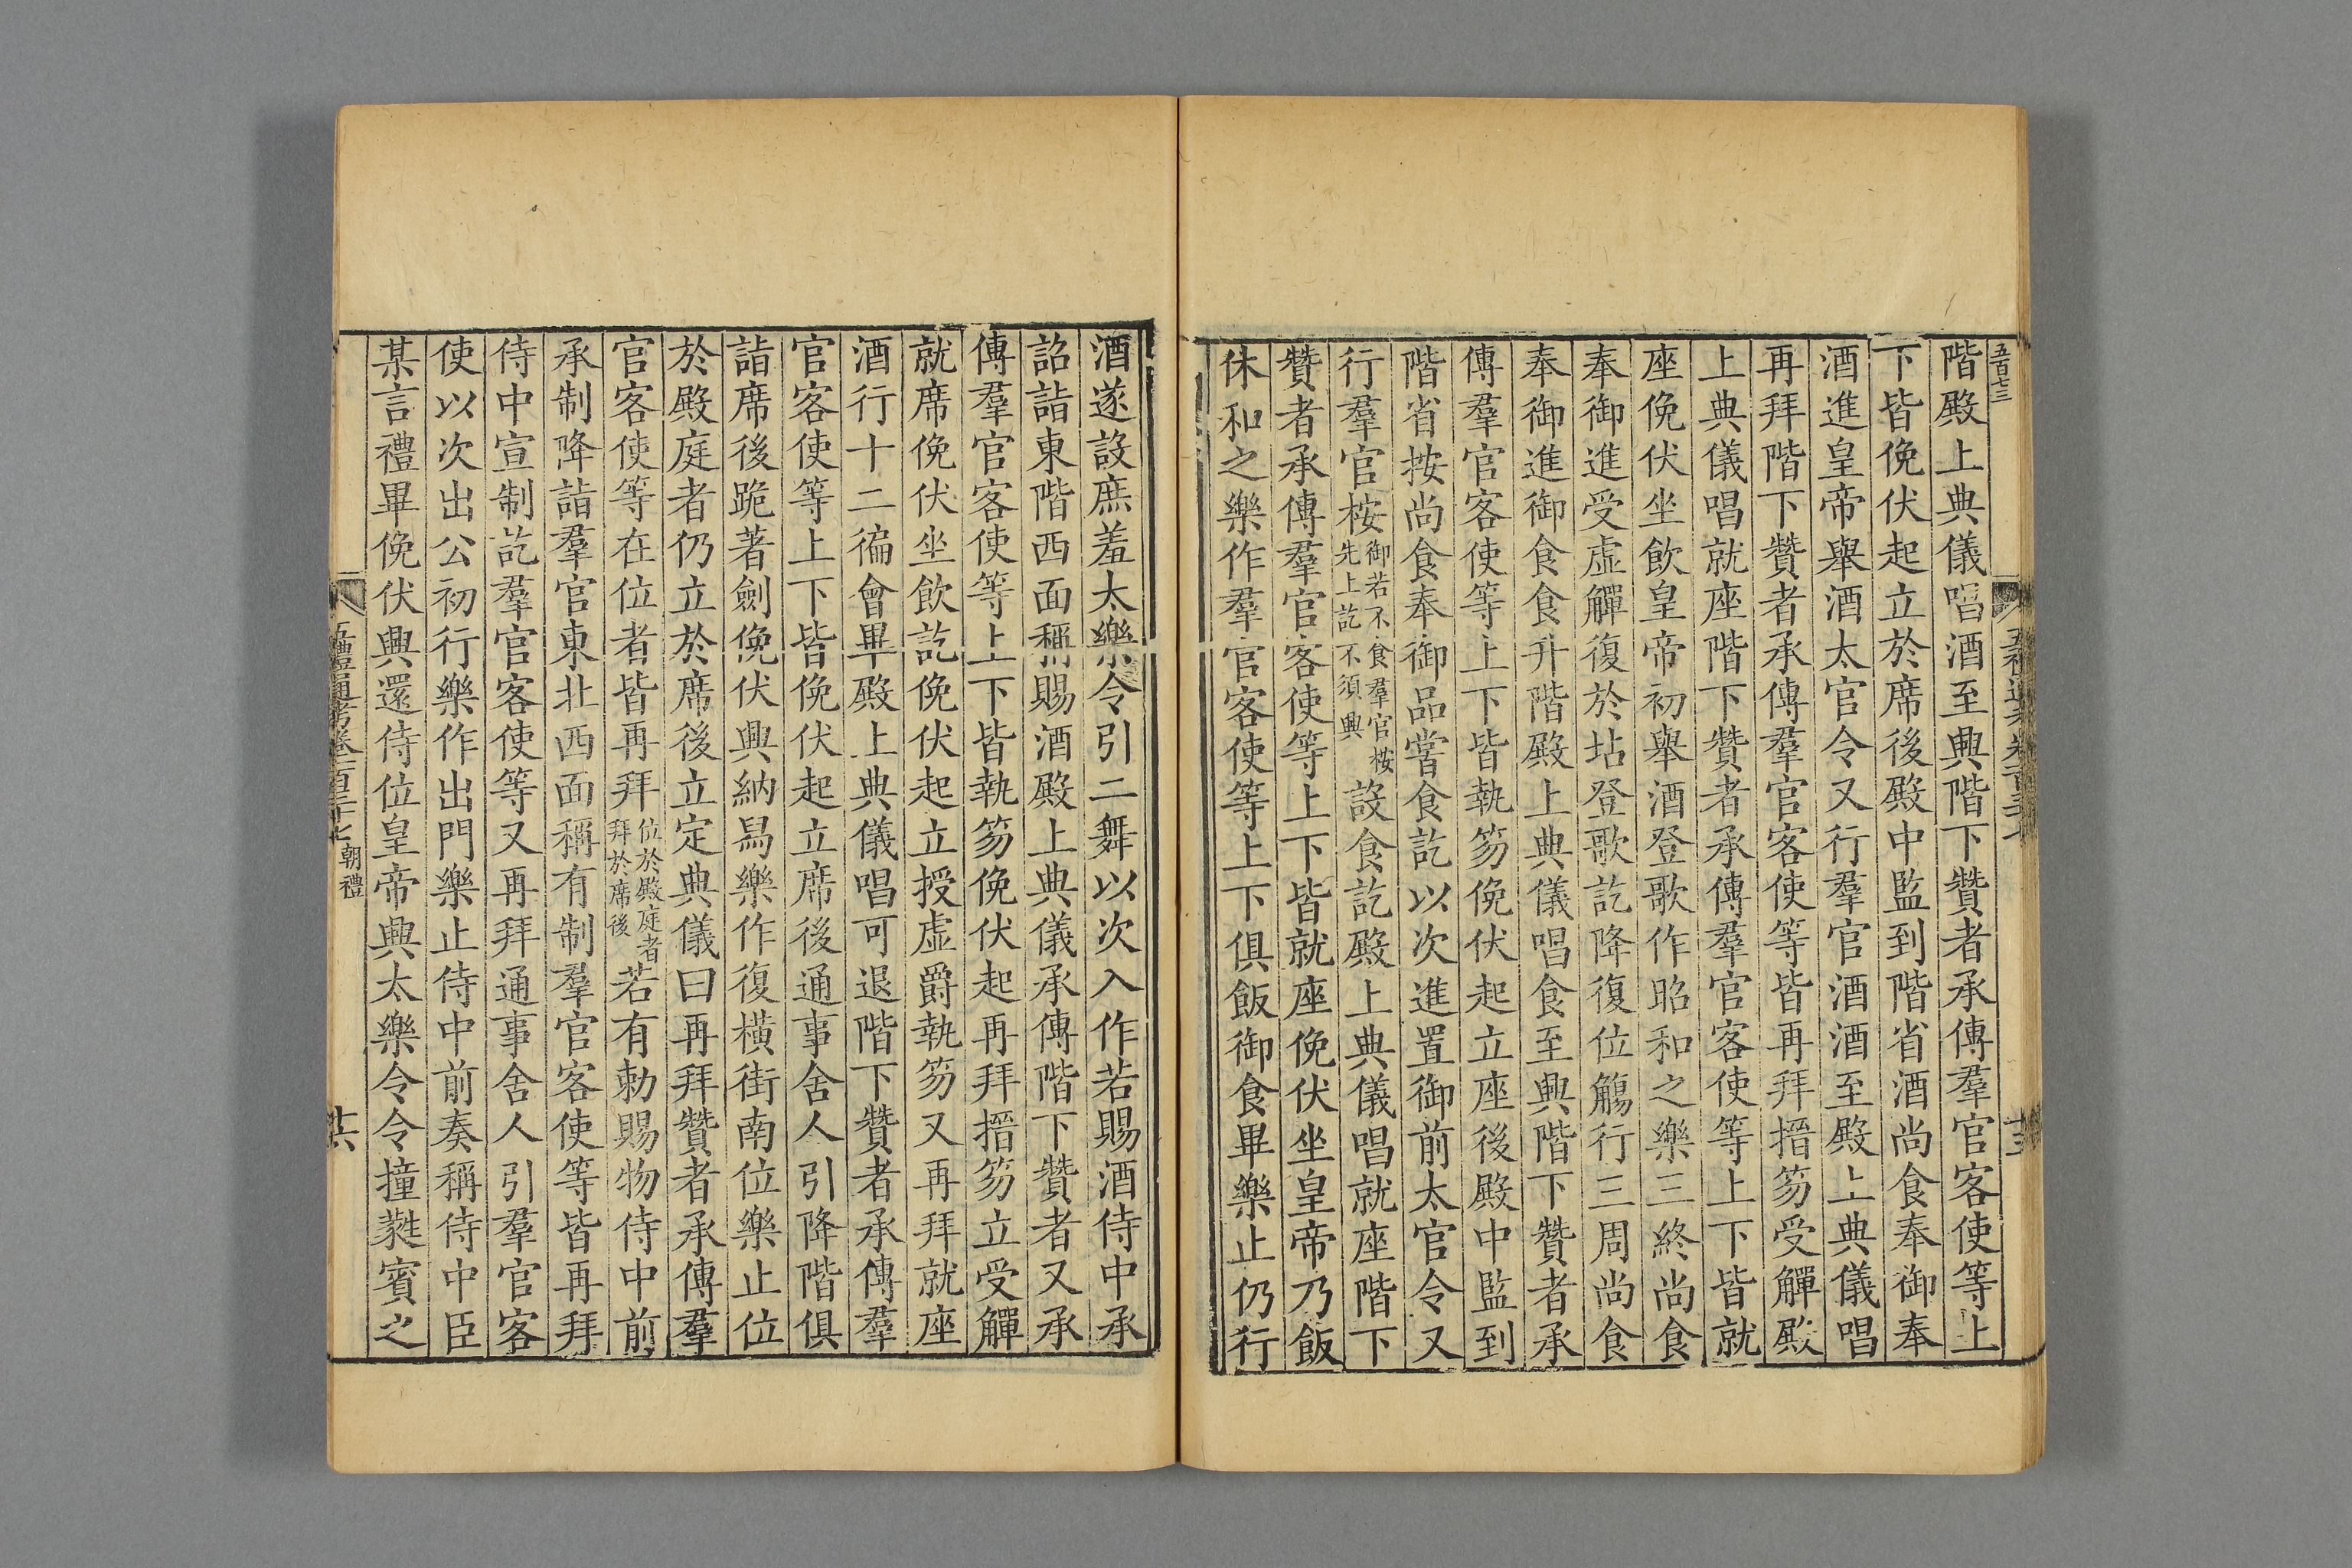 五百七三
階殿上典儀唱酒至興階下贊者承傳羣官客使等上
下皆俛伏起立於席後殿中監到階省酒尚食奉御奉
酒進皇帝舉酒太官令又行羣官酒酒至殿上典儀唱
再拜階下贊者承傳羣官客使等皆再拜搢笏受觶殿
上典儀唱就座階下贊者承傳羣官客使等上下皆就
座俛伏坐飲皇帝初舉酒登歌作昭和之樂三終尚食
奉御進受虛觶復於坫登歌訖降復位觴行三周尚食
奉御進御食食升階殿上典儀唱食至興階下贊者承
傳羣官客使等上下皆執笏俛伏起立座後殿中監到
階省按尚食奉御品嘗食訖以次進置御前太官令又
行羣官桉御若不食羣官桉先上訖不須興設食訖殿上典儀唱就座階下
贊者承傳羣官客使等上下皆就座俛伏坐皇帝乃飯
休和之樂作羣官客使等上下俱飯御食畢樂止仍行
酒遂設庶羞太樂令引二舞以次入作若賜酒侍中承
詔詣東階西面稱賜酒殿上典儀承傳階下贊者又承
傳羣官客使等上下皆執笏俛伏起再拜搢笏立受觶
就席俛伏坐飲訖俛伏起立授虛爵執笏又再拜就座
酒行十二徧會畢殿上典儀唱可退階下贊者承傳羣
官客使等上下皆俛伏起立席後通事舍人引降階俱
詣席後跪著劍俛伏興納舄樂作復橫街南位樂止位
於殿庭者仍立於席後立定典儀曰再拜贊者承傳羣
官客使等在位者皆再拜位於殿庭者拜於席後若有勅賜物侍中前
承制降詣羣官東北西面稱有制羣官客使等皆再拜
侍中宣制訖羣官客使等又再拜通事舍人引羣官客
使以次出公初行樂作出門樂止侍中前奏稱侍中臣
某言禮畢俛伏興還侍位皇帝興太樂令令撞蕤賓之
五禮通考卷一百三十七 朝禮